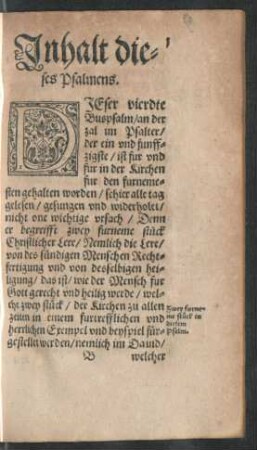 Inhalt die-
ses Psalmens.
DIEser vierdte
Buspsalm/an der
zal im Psalter/
der ein vnd funff-
zigste/ist fur vnd
fur in der Kirchen
fur den furneme-
sten gehalten worden/schier alle tag
gelesen/gesungen vnd widerholet/
nicht one wichtige vrsach/Denn
er begreifft zwey furneme stück
Christlicher Lere/Nemlich die Lere/
von des sündigen Menschen Recht-
fertigung vnd von desselbigen hei-
ligung/das ist/wie der Mensch fur
Gott gerecht vnd heilig werde/wel-
che zwey stück/der Kirchen zu allen
zeitn in einem furtrefflichen vnd
herrlichen Exempel vnd beyspiel für-
gestellt werden/nemlich im Dauid/
Zwey furne-
me stück in
diesem
Psalm.
B welcher